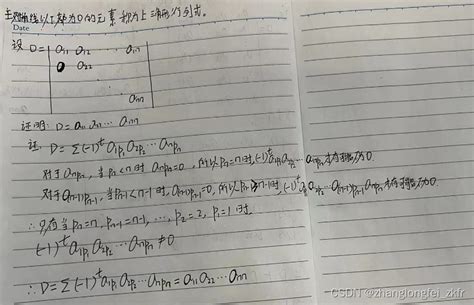 主对角线以下都为0的元素称为上三角形行列式。
Date
设 D = | a₁₁ a₁₂ ... a₁n |
0 a₂₂
.
ann
证明: D = a₁₁ a₂₂ ... ann
证: D = Σ(-1)ᵗ a₁p₁ a₂p₂ ... anpn
对于 anpn, 当 pn<n 时 anpn=0, 所以 pn=n时, (-1)ᵗ a₁p₁ a₂p₂ ... anpn 才有可能不为0.
对于 a(n-1)p(n-1), 当 p(n-1)<n-1 时, a(n-1)p(n-1)=0, 所以 n-1时, (-1)ᵗ a₁p₁ a₂p₂ ... a(n-1)p(n-1) anpn 才有可能不为0.
∴ 只有当 pn=n, pn-1=n-1, ..., p₂=2, p₁=1 时,
(-1)ᵗ a₁p₁ a₂p₂ ... anpn ≠ 0
∴ D = Σ(-1)ᵗ a₁p₁ a₂p₂ ... anpn = a₁₁ a₂₂ ... ann
CSDN @zhanglongfei_zkfr